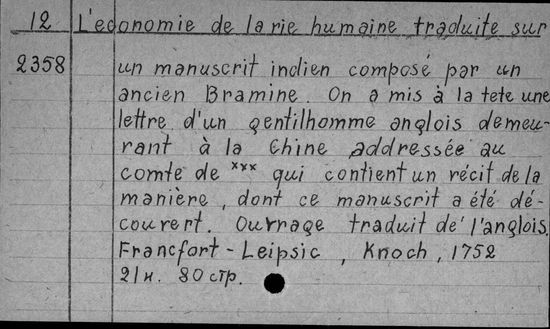 12 L'economie de la rie humaine traduite sur
2358 un manuscrit indien composé par un
ancien Bramine. On a mis à la tete une
lettre d'un gentilhomme anglois demeu-
rant à la Chine addressée au
comte de *** qui contient un récit de la
manière, dont ce manuscrit a été dé-
couvert. Ouvrage traduit de l'anglois.
Francfort-Leipsic, Knoch, 1752
21н. 80 стр.